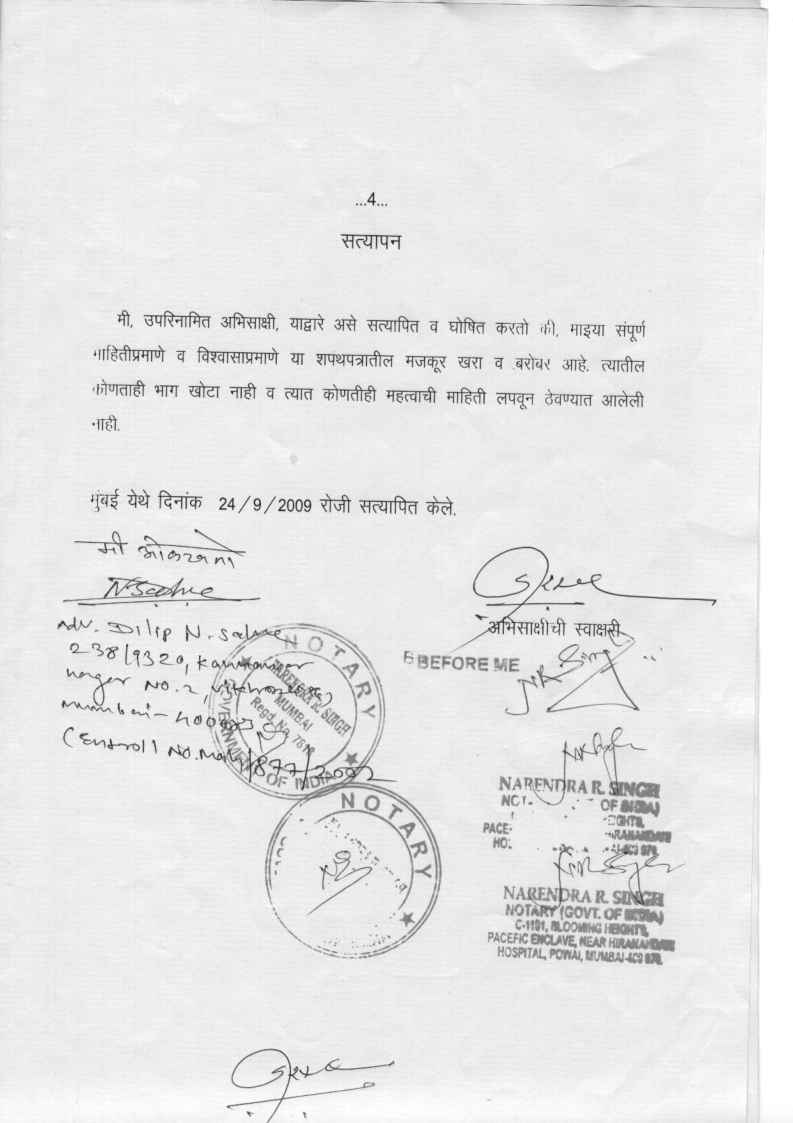 ...4...
सत्यापन
मी, उपरिनामित अभिसाक्षी, याद्वारे असे सत्यापित व घोषित करतो की, माझ्या संपूर्ण
माहितीप्रमाणे व विश्वासाप्रमाणे या शपथपत्रातील मजकूर खरा व बरोबर आहे. त्यातील
कोणताही भाग खोटा नाही व त्यात कोणतीही महत्वाची माहिती लपवून ठेवण्यात आलेली
नाही.
मुंबई येथे दिनांक 24/9/2009 रोजी सत्यापित केले.
मी ओळखतो
Adv. Dilip N.
238/9320, Kannamwar
nagar NO. 2,
mumbai-
(Enroll No. Mah/877/2002
NOTARY
MUMBAI
Regd. No.
GOVERNMENT OF INDIA
NOTARY
अभिसाक्षीची स्वाक्षरी
BEFORE ME
NARENDRA R. SINGH
NARENDRA R. SINGH
NOTARY (GOVT. OF INDIA)
C-1101, BLOOMING HEIGHTS,
PACEFIC ENCLAVE, NEAR HIRANANDANI
HOSPITAL, POWAI, MUMBAI-